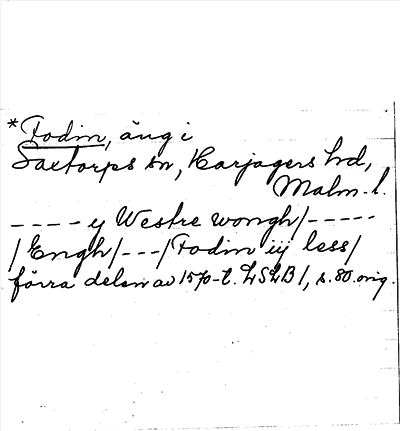 *Fodin, äng i
Saxtorps sn, Harjagers hd,
Malm. l.
---- y Westre wongh/-----
/Engh/---/Fodin iij less/
förra delen av 1570-t. LSLB 1, s. 80. orig.